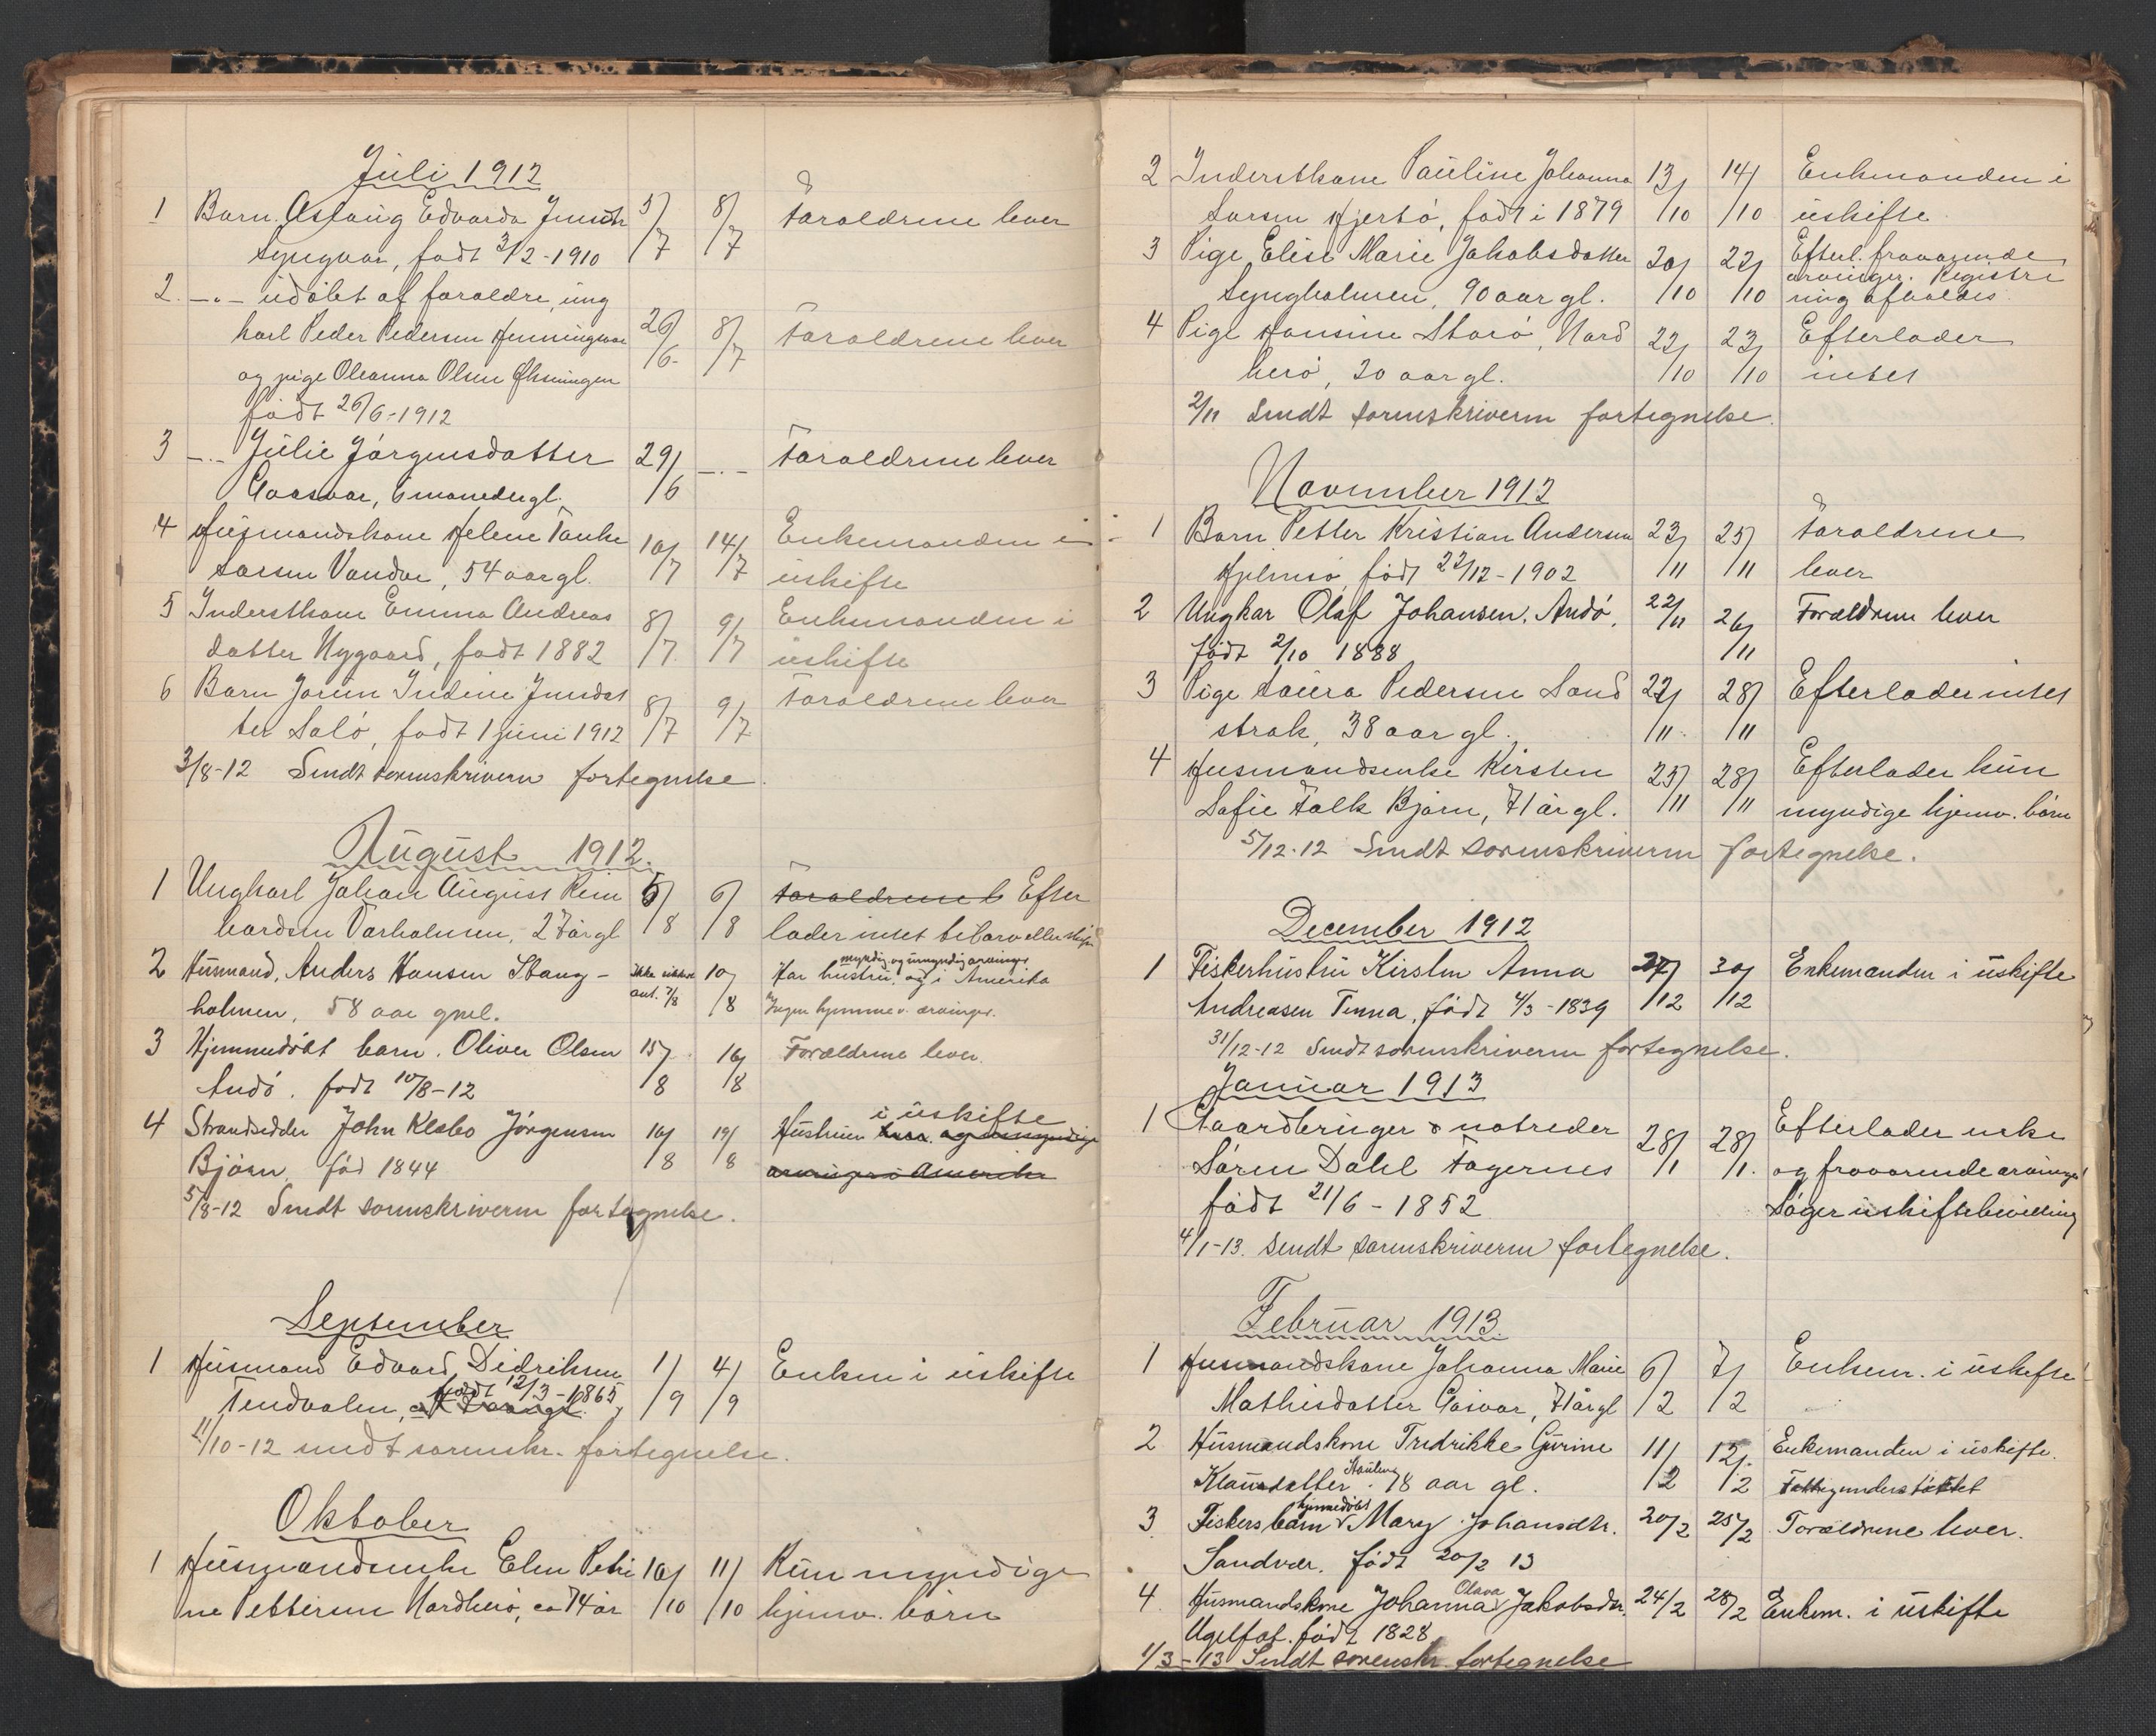 Juli 1912
1 Barn Aslaug Edvarda Jensdtr 5/7 8/7 Forældrene lever
Lyngvær, født 3/2-1910
2. -"- udøbt af forældre, ung
karl Peder Pedersen Henningvær 26/6 8/7 Forældrene lever
og pige Oleanna Olsen Øksningen
født 26/6-1912
3 -"- Julie Jørgensdatter 29/6 -"- Forældrene lever
Gaasvær, 6 maaneder gl.
4 Husmandskone Helene Tanke 10/7 14/7 Enkemanden i
Larsen Vandve, 54 aar gl. uskifte
5 Inderstkone Emma Andreas 8/7 9/7 Enkemanden i
datter Nygaard, født 1882 uskifte
6 Barn Jorun Indine Jensdat 8/7 9/7 Forældrene lever
ter Salø, født 1 juni 1912
3/8-12 Sendt sorenskriveren fortegnelse.
August 1912.
1 Ungkarl Johan August Rein 5/8 6/8 Forældrene l Efter
hardsen Varholmen, 27 år gl lader intet
2 Husmand, Anders Hansen Stang- ikke sikkert 10/8 Har hustru, myndig og umyndig arvinger og i Amerika
holmen, 58 aar gml. ant. 7/8 Ingen hjemme v. arvinger.
3 Hjemmedøbt barn. Oliver Olsen 15/8 16/8 Forældrene lever.
Andø. født 10/8-12
4 Strandsidder John Klæbo Jørgensen 16/8 19/8 Hustruen i uskifte har og umyndige
Bjørn, fød 1844 arvinger i Amerika
5/8-12 Sendt sorenskriveren fortegnelse.
September
1 Husmand Edvard Didriksen 1/9 4/9 Enken i uskifte
Tendvalen, født 12/3-1865
11/10-12 sendt sorenskr. fortegnelse.
Oktober
1 Husmandsenke Elen Petri 10/10 11/10 Kun myndige
ne Pettersen Nordherø, ca 74 år hjemv. børn
2 Inderstkone Pauline Johanna 13/10 14/10 Enkemanden i
Larsen Hjertø, født i 1879 uskifte
3 Pige Elise Marie Jakobsdatter 20/10 22/10 Efterl. fraværende
Lyngholmen, 90 aar gl. arvinger. Registre
ring afholdes
4 Pige Hansine Storø, Nord 22/10 23/10 Efterlader
herø, 20 aar gl. intet
2/11 Sendt sorenskriveren fortegnelse.
November 1912
1 Barn Petter Kristian Andersen 23/11 25/11 Forældrene
Hjelmsø, født 22/12-1902 lever
2 Ungkar Olaf Johansen. Andø. 22/11 26/11 Forældrene lever
født 2/10 1888
3 Pige Laura Pedersen Sand 22/11 28/11 Efterlader intet
strak, 38 aar gl.
4 Husmandsenke Kirsten 25/11 28/11 Efterlader kun
Sofie Falk Bjørn, 71 år gl. myndige hjemv. børn
5/12-12 Sendt sorenskriveren fortegnelse.
December 1912
1 Fiskerhustru Kirsten Anna 27/12 30/12 Enkemanden i uskifte
Andreasen Tenna, født 4/3-1839
31/12-12 Sendt sorenskriveren fortegnelse.
Januar 1913
1 Gaardbruger & notreder 28/1 28/1. Efterlader enke
Søren Dahl Fagernes og fraværende arvinger
født 21/6-1852 Søger uskiftebevilling
4/1-13. Sendt sorenskriveren fortegnelse.
Februar 1913
1 Husmandskone Johanna Marie 6/2 7/2 Enkem. i uskifte
Mathisdatter Gåsvær, 71 år gl
2 Husmandskone Fredrikke Gurine 11/2 12/2. Enkemanden i uskifte.
Klausdatter Staulen. 78 aar gl. Fattigunderstøttet
3 Fiskers barn hjemmedøbt Mary Johansdtr. 20/2 25/2 Forældrene lever.
Sandvær. født 20/2 13
4 Husmandskone Johanna Olava Jakobsdtr. 24/2 28/2 Enkem. i uskifte
Ugelfat. født 1828
1/3-13 Sendt sorenskr fortegnelse